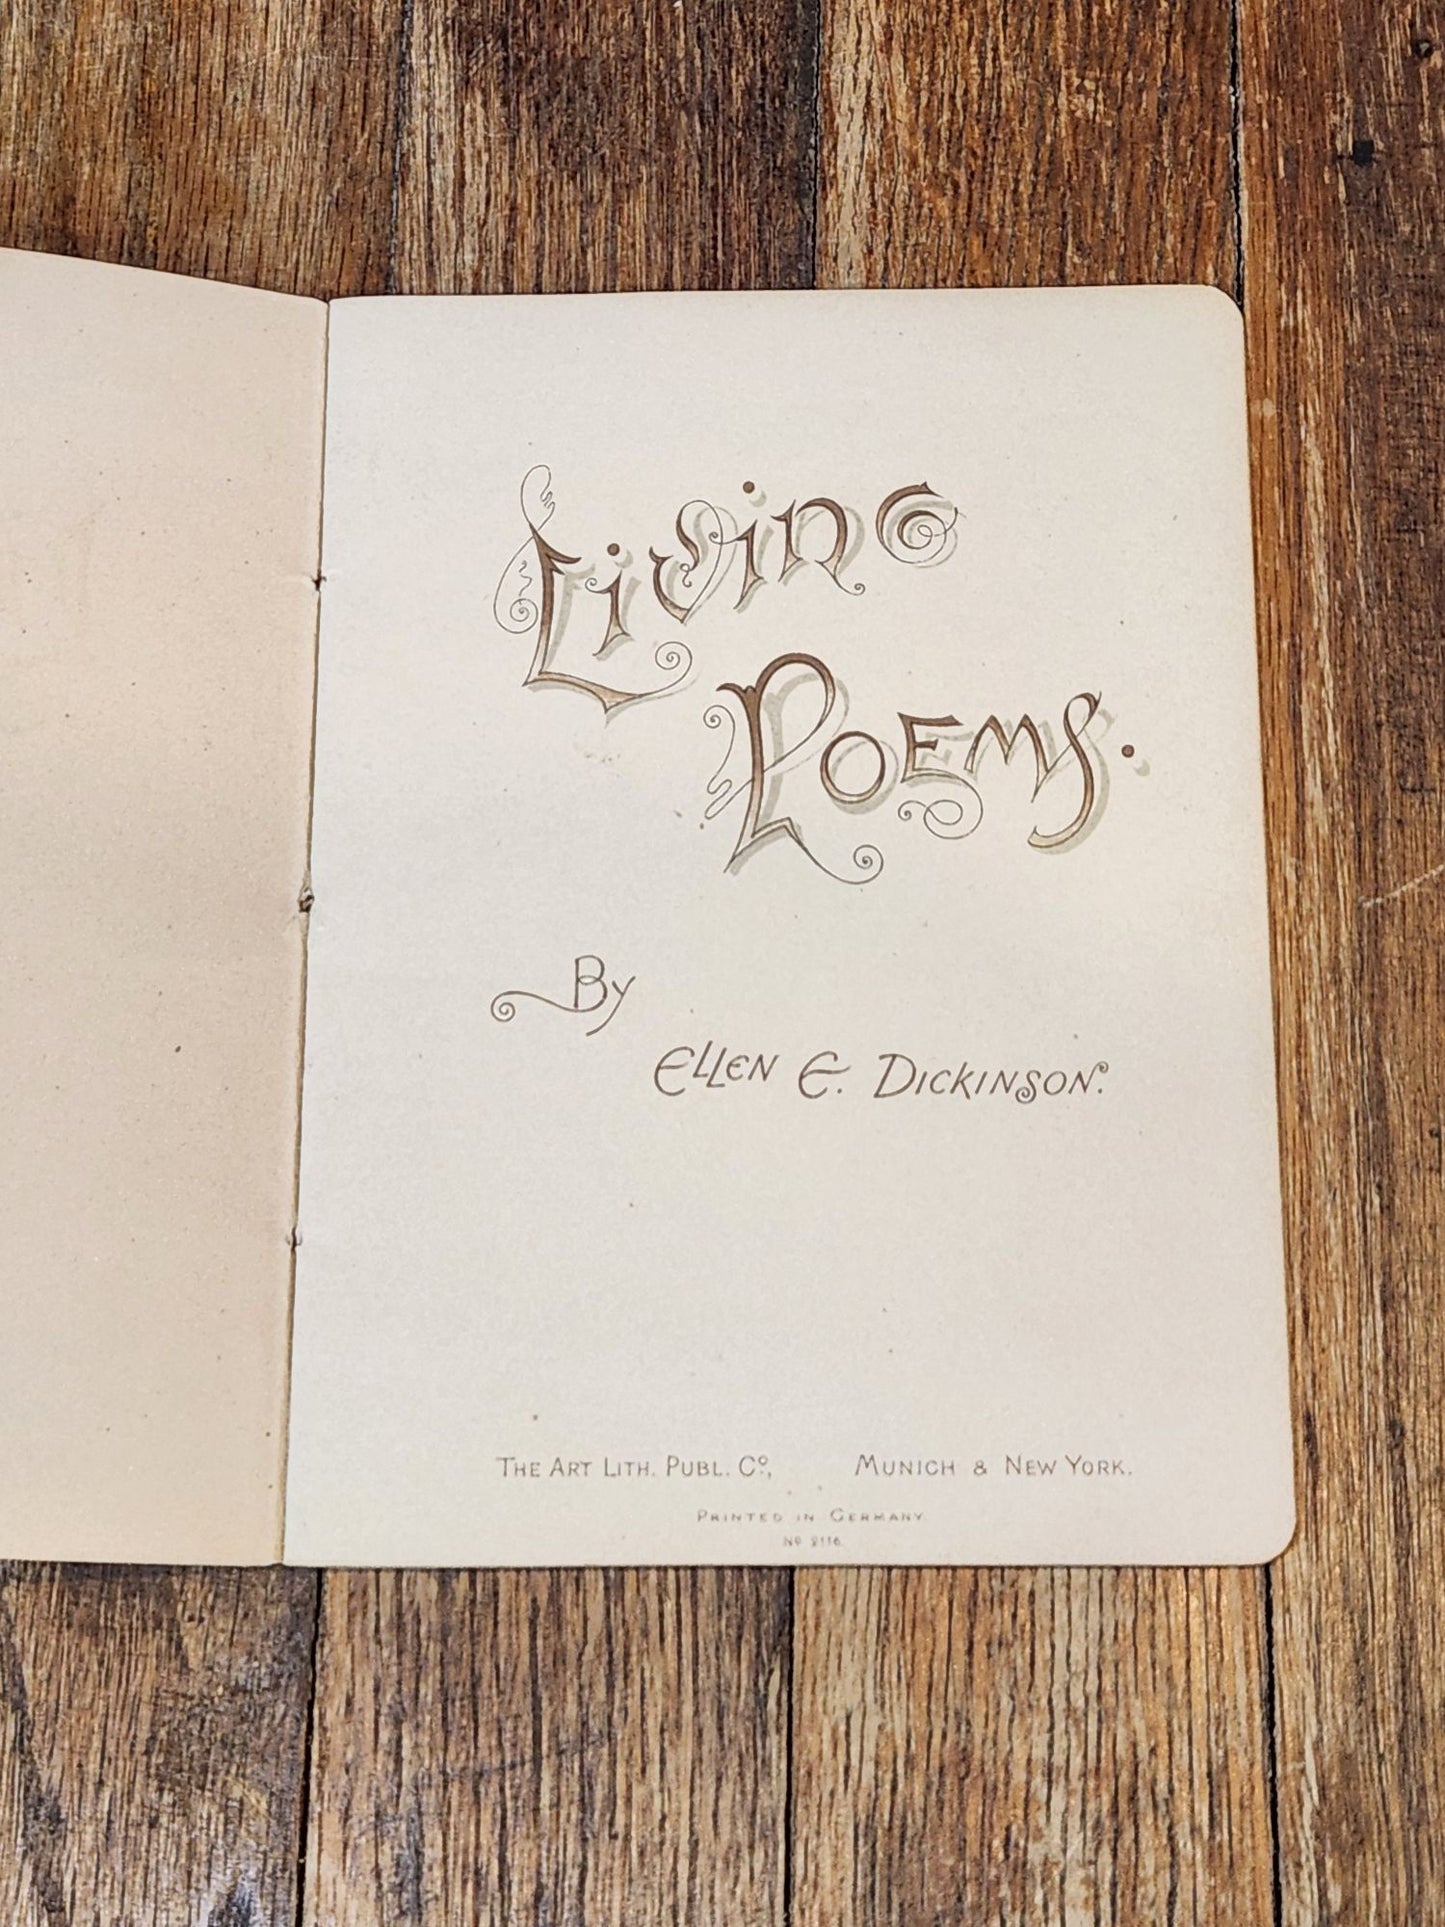 Living
Poems.
By
Ellen E. Dickinson.
The Art Lith. Publ. Co., Munich & New York.
Printed in Germany
No